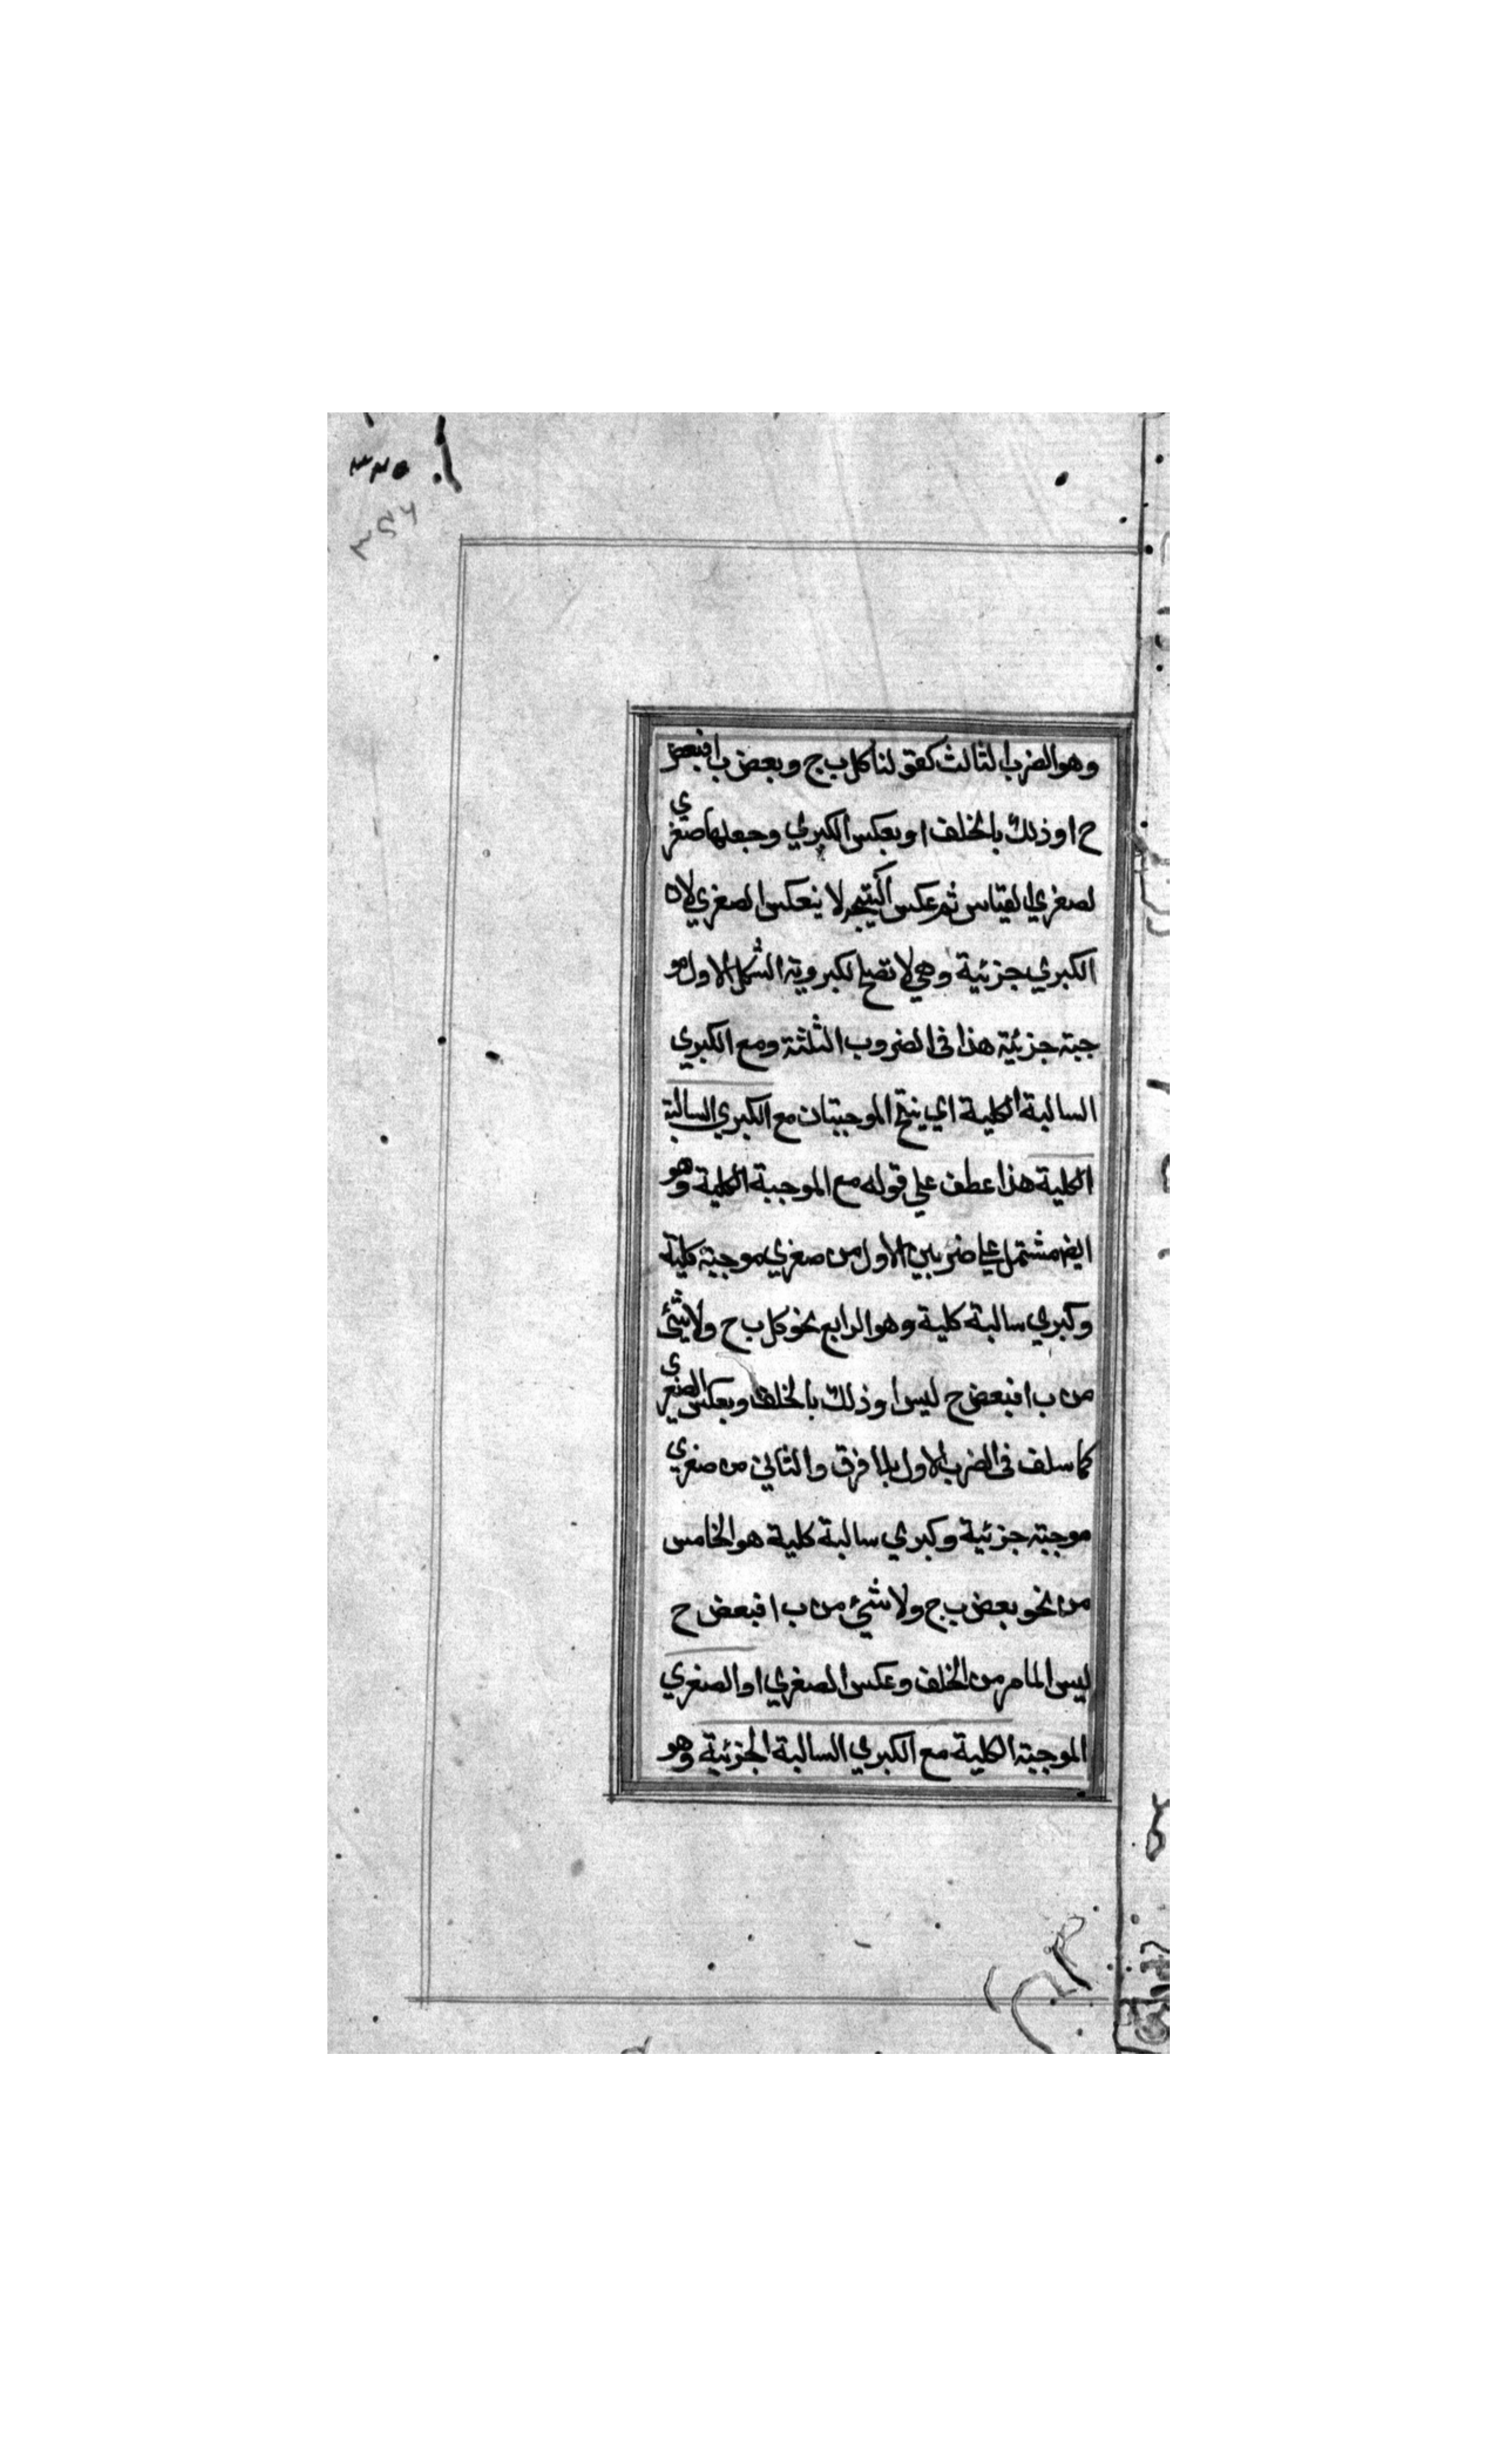 وهو الضرب الثالث كقولنا كل ب ج وبعض ب ا فبعض
ح ا وذلك بالخلف او بعكس الكبري وجعلها صغري
لصغري القياس ثم عكس النتيجه لا بعكس الصغري لان
الكبري جزئية وهي لا تصلح لكبروية الشكل الاول مو
جبة جزئية هذا في الضروب الثلثة ومع الكبري
السالبة الكلية اي ينتج الموجبتان مع الكبري السالبة
الكلية هذا عطف علي قوله مع الموجبة الكلية وهو
ايضا مشتمل علي ضربين الاول من صغري موجبة كلية
وكبري سالبة كلية وهو الرابع نحو كل ب ح ولا شئ
من ب ا فبعض ح ليس ا وذلك بالخلف وبعكس الصغري
كما سلف في الضرب الاول بلا فرق والثاني من صغري
موجبة جزئية وكبري سالبة كلية هو الخامس
من نحو بعض ب ج ولا شئ من ب ا فبعض ح
ليس ا لما مر من الخلف وعكس الصغري او الصغري
الموجبة الكلية مع الكبري السالبة الجزئية وهو